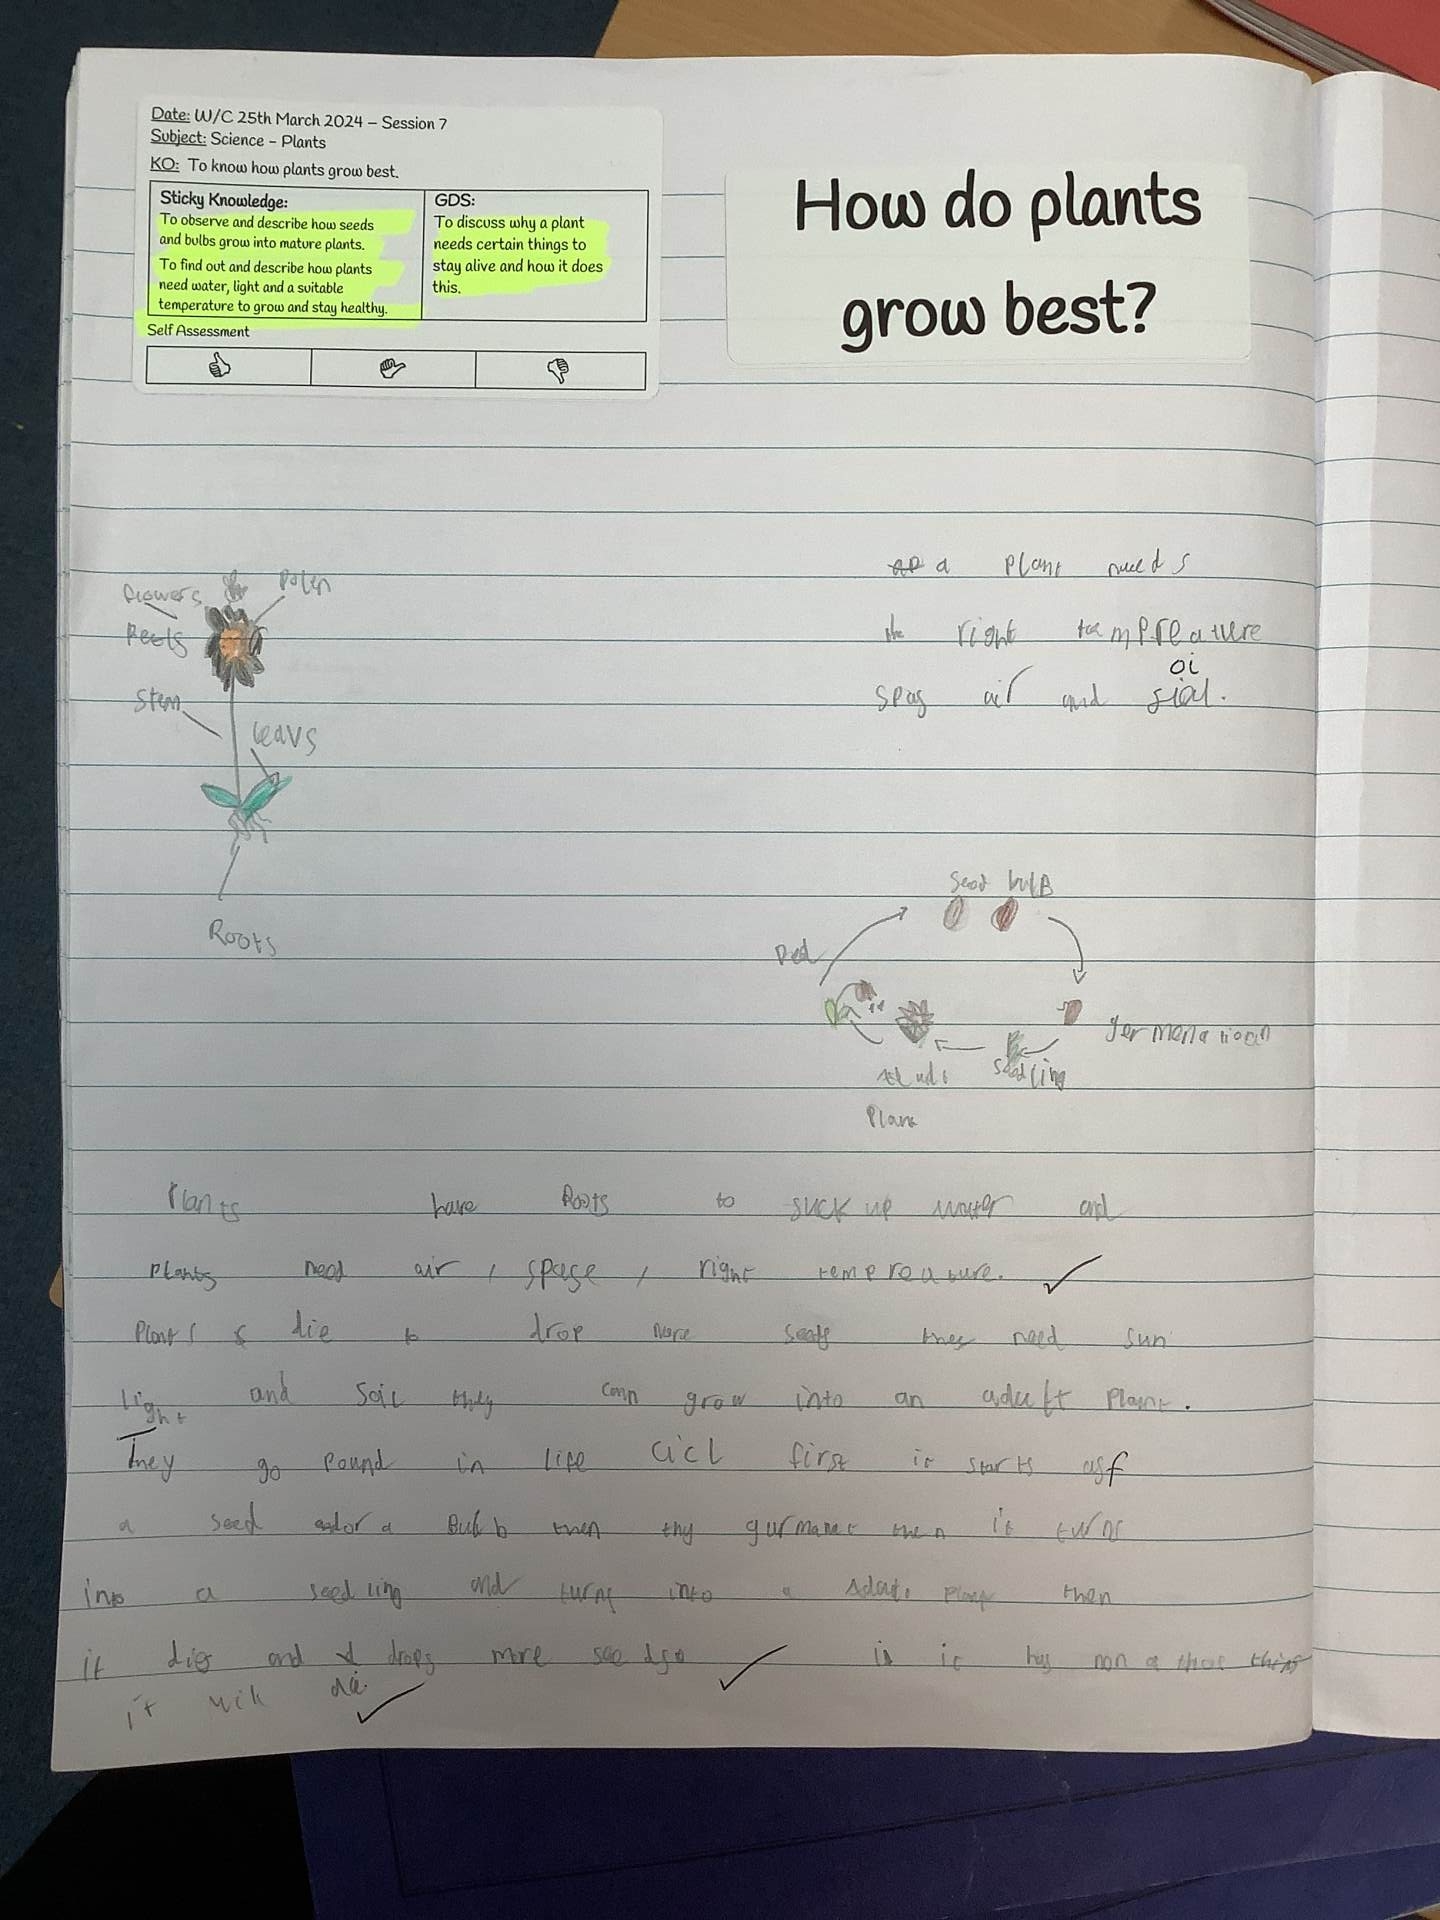 Date: W/C 25th March 2024 – Session 7
Subject: Science – Plants
KO: To know how plants grow best.
Sticky Knowledge:
To observe and describe how seeds
and bulbs grow into mature plants.
To find out and describe how plants
need water, light and a suitable
temperature to grow and stay healthy.
GDS:
To discuss why a plant
needs certain things to
stay alive and how it does
this.
Self Assessment
How do plants
grow best?
flowers
Polen
Petls
Stem
leavs
Roots
a plant needs
the right tempreature
oi
spas air and siol.
seed bulB
Ded
germenatioan
seedling
Plant
Plants have Roots to suck up water and
plants need air, spase, right tempreature.
Plants die to drop more seeds they need sun
light and soil they can grow into an adult plant.
They go round in life cicl first it starts as
a seed or a Bulb then thy gurmanet then it turns
into a seedling and turns into a Adalt plant then
it dies and drops more seeds it has non of thos things
it will die